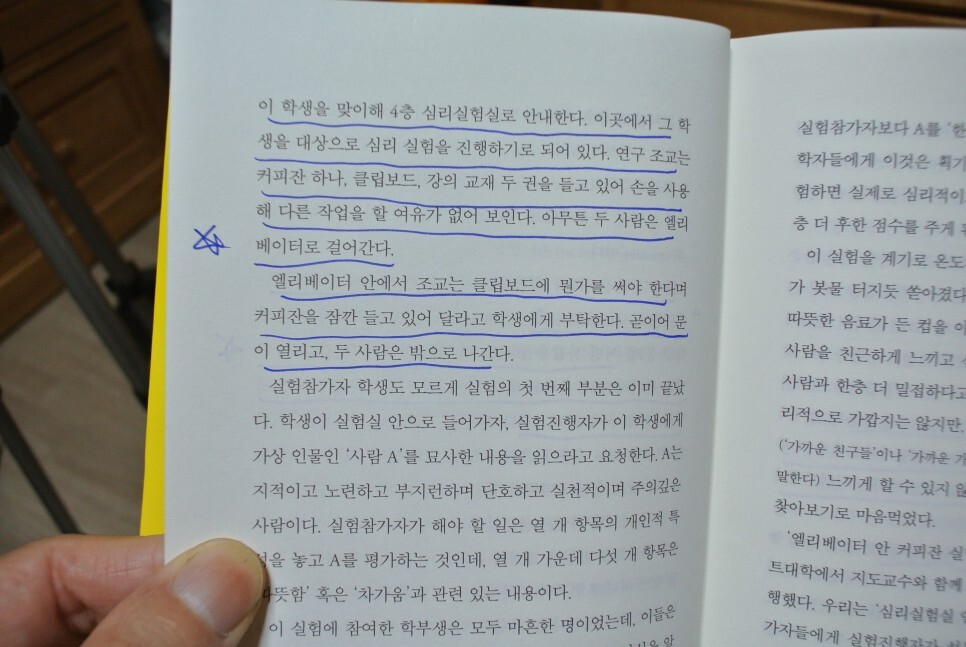 이 학생을 맞이해 4층 심리실험실로 안내한다. 이곳에서 그 학
생을 대상으로 심리 실험을 진행하기로 되어 있다. 연구 조교는
커피잔 하나, 클립보드, 강의 교재 두 권을 들고 있어 손을 사용
해 다른 작업을 할 여유가 없어 보인다. 아무튼 두 사람은 엘리
베이터로 걸어간다.
엘리베이터 안에서 조교는 클립보드에 뭔가를 써야 한다며
커피잔을 잠깐 들고 있어 달라고 학생에게 부탁한다. 곧이어 문
이 열리고, 두 사람은 밖으로 나간다.
실험참가자 학생도 모르게 실험의 첫 번째 부분은 이미 끝났
다. 학생이 실험실 안으로 들어가자, 실험진행자가 이 학생에게
가상 인물인 ‘사람 A’를 묘사한 내용을 읽으라고 요청한다. A는
지적이고 노련하고 부지런하며 단호하고 실천적이며 주의깊은
사람이다. 실험참가자가 해야 할 일은 열 개 항목의 개인적 특
을 놓고 A를 평가하는 것인데, 열 개 가운데 다섯 개 항목은
뜻함’ 혹은 ‘차가움’과 관련 있는 내용이다.
이 실험에 참여한 학부생은 모두 마흔한 명이었는데, 이들은
실험참가자보다 A를
학자들에게 이것은 획기
험하면 실제로 심리적이
층 더 후한 점수를 주게
이 실험을 계기로 온도
가 봇물 터지듯 쏟아졌다
따뜻한 음료가 든 컵을
사람을 친근하게 느끼고
사람과 한층 더 밀접하다고
리적으로 가깝지는 않지만,
(‘가까운 친구들’이나 ‘가까운 가
말한다) 느끼게 할 수 있지
찾아보기로 마음먹었다.
‘엘리베이터 안 커피잔 실
트대학에서 지도교수와 함께
행했다. 우리는 ‘심리실험실
가자들에게 실험진행자가